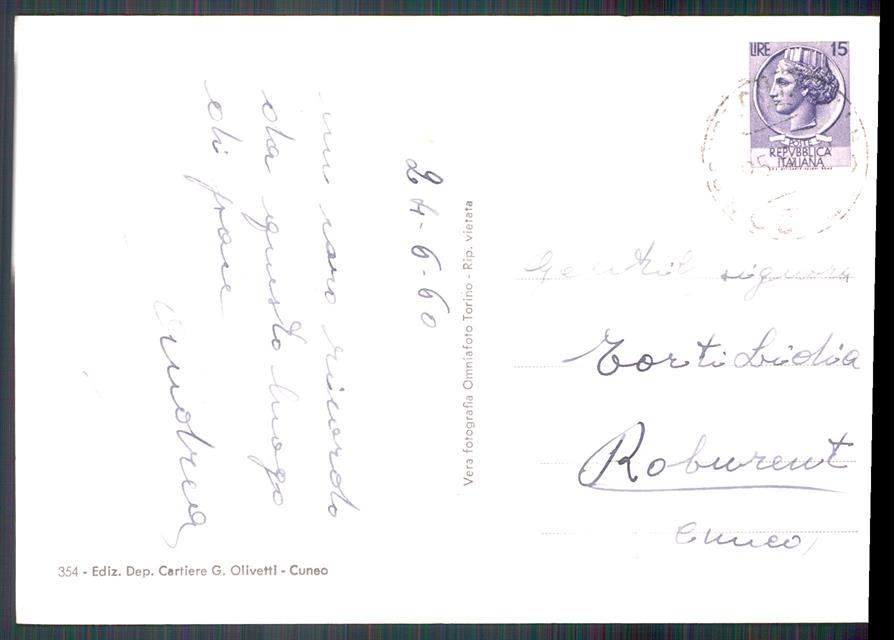 24-6-60
un caro ricordo
da questo luogo
di pace
Andrea
354 - Ediz. Dep. Cartiere G. Olivetti - Cuneo
Vera fotografia Omniafoto Torino - Rip. vietata
LIRE 15
POSTE
REPVBBLICA
ITALIANA
Gentil signora
Torti Lidia
Roburent
Cuneo